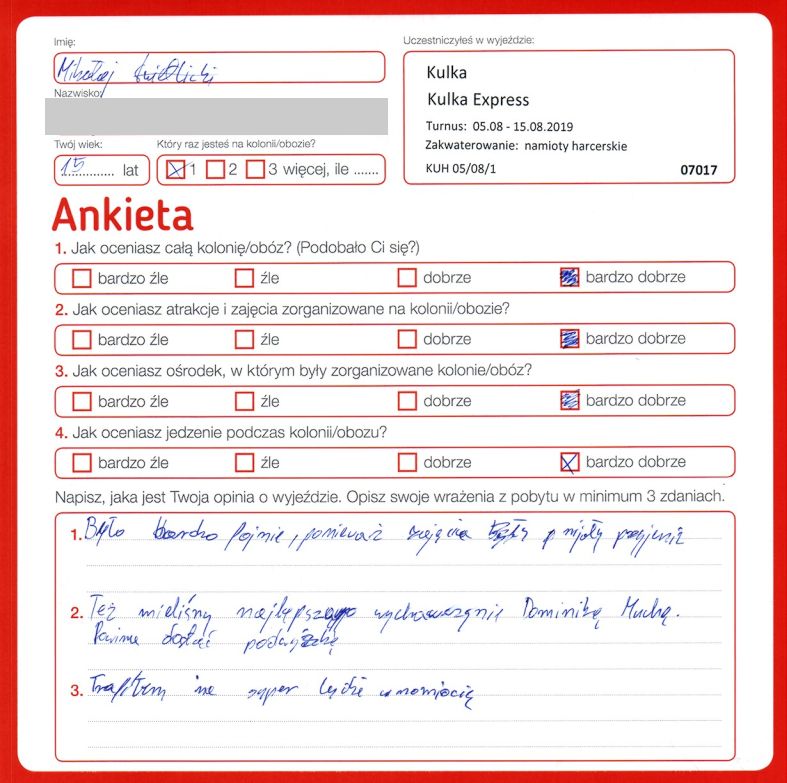 Imię:
Mikołaj
Nazwisko:
Twój wiek:
15 lat
Który raz jesteś na kolonii/obozie?
1 2 3 więcej, ile .......
Uczestniczyłeś w wyjeździe:
Kulka
Kulka Express
Turnus: 05.08 - 15.08.2019
Zakwaterowanie: namioty harcerskie
KUH 05/08/1 07017
Ankieta
1. Jak oceniasz całą kolonię/obóz? (Podobało Ci się?)
bardzo źle źle dobrze bardzo dobrze
2. Jak oceniasz atrakcje i zajęcia zorganizowane na kolonii/obozie?
bardzo źle źle dobrze bardzo dobrze
3. Jak oceniasz ośrodek, w którym były zorganizowane kolonie/obóz?
bardzo źle źle dobrze bardzo dobrze
4. Jak oceniasz jedzenie podczas kolonii/obozu?
bardzo źle źle dobrze bardzo dobrze
Napisz, jaka jest Twoja opinia o wyjeździe. Opisz swoje wrażenia z pobytu w minimum 3 zdaniach.
1. Było bardzo fajnie, ponieważ zajęcia
2. Też mieliśmy najlepszego wychowawczynie Dominikę Muchą.
Powinna dostać podwyżkę
3. Trafiłem na super ludzi w namiocie